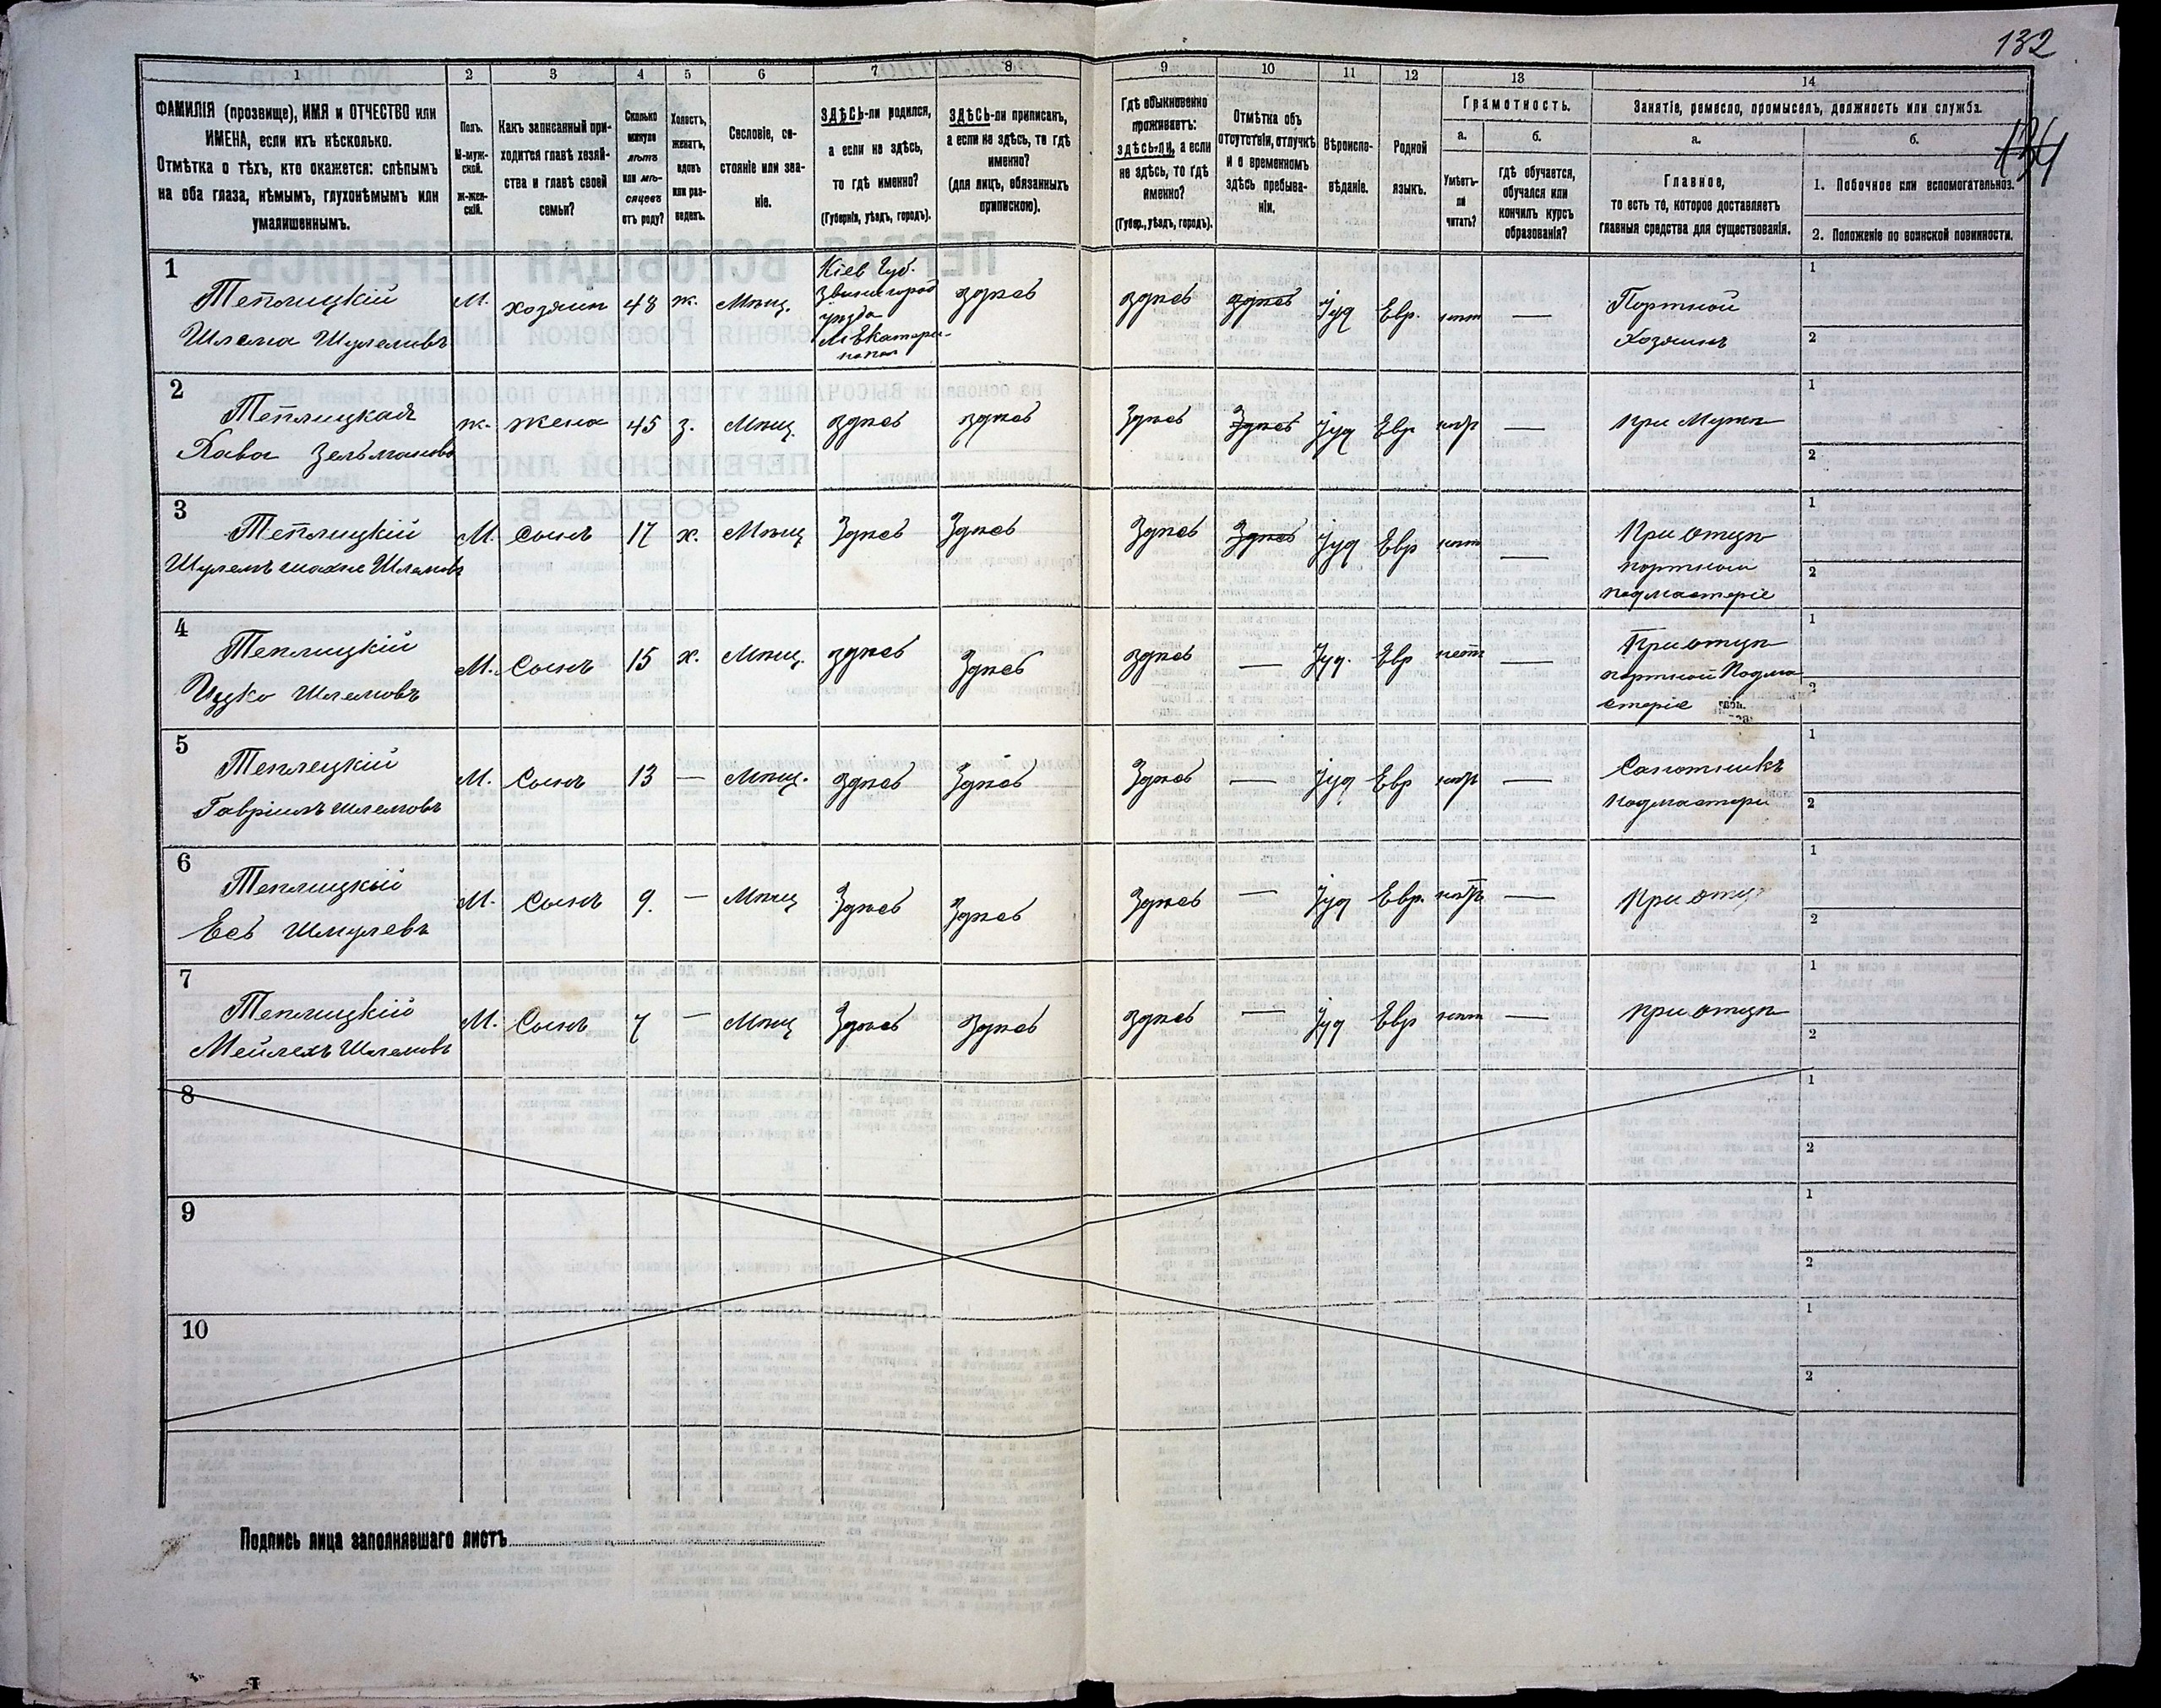 132
134
1 2 3 4 5 6 7 8 9 10 11 12 13 14
ФАМИЛІЯ (прозвище), ИМЯ и ОТЧЕСТВО или
ИМЕНА, если ихъ нѣсколько.
Отмѣтка о тѣхъ, кто окажется: слѣпымъ
на оба глаза, нѣмымъ, глухонѣмымъ или
умалишеннымъ.
Полъ.
М-муж-
ской.
Ж-жен-
скій.
Какъ записанный при-
ходится главѣ хозяй-
ства и главѣ своей
семьи?
Сколько
минуло
лѣтъ
или мѣ-
сяцевъ
отъ роду?
Холостъ,
женатъ,
вдовъ
или раз-
веденъ.
Сословіе, со-
стояніе или зва-
ніе.
ЗДѢСЬ-ли родился,
а если не здѣсь,
то гдѣ именно?
(Губернія, уѣздъ, городъ).
ЗДѢСЬ-ли приписанъ,
а если не здѣсь, то гдѣ
именно?
(для лицъ, обязанныхъ
припискою).
Гдѣ обыкновенно
проживаетъ:
здѣсь-ли, а если
не здѣсь, то гдѣ
именно?
(Губер., уѣздъ, городъ).
Отмѣтка объ
отсутствіи, отлучкѣ
и о временномъ
здѣсь пребыва-
ніи.
Вѣроиспо-
вѣданіе.
Родной
языкъ.
Грамотность.
а.
Умѣетъ-
ли
читать?
б.
гдѣ обучается,
обучался или
кончилъ курсъ
образованія?
Занятіе, ремесло, промыселъ, должность или служба.
а.
Главное,
то есть то, которое доставляетъ
главныя средства для существованія.
б.
1. Побочное или вспомогательное.
2. Положеніе по воинской повинности.
1
Теплицкій
Шлема Шулемовъ
М. хозяин 48 ж. Мѣщ.
Кіев Губ.
Звенигород
уѣзда
М Екатери-
нополь
здѣсь здѣсь здѣсь Іуд Евр. нѣтъ —
Портной
Хозяинъ
1
2
2
Теплицкая
Хава Зельманова
ж. жена 45 з. Мѣщ. здѣсь здѣсь здѣсь Здѣсь Іуд Евр —
при Мужѣ
1
2
3
Теплицкій
Шлемовъ
М. Сынъ 17 х. Мѣщ Здѣсь Здѣсь Здѣсь Здѣсь Іуд Евр нѣтъ —
При отцѣ
портной
подмастеріе
1
2
4
Теплицкій
Ицко Шлемовъ
М. Сынъ 15 х. Мѣщ. здѣсь Здѣсь здѣсь — Іуд. Евр нетъ —
При отцѣ
портной Подма
стеріе
1
2
5
Теплецкій
Гавріилъ Шлемовъ
М. Сынъ 13 — Мѣщ. здѣсь Здѣсь Здѣсь — Іуд Евр —
Сапожникъ
подмастери
1
2
6
Теплицкій
Есь Шмулевъ
М. Сынъ 9. — Мѣщ Здѣсь Здѣсь Здѣсь — Іуд Евр. —
При отцѣ
1
2
7
Теплицкій
Мейлехъ Шлемовъ
М. Сынъ 7 — Мѣщ Здѣсь Здѣсь здѣсь — Іуд Евр нѣтъ —
при отцѣ
1
2
8
1
2
9
1
2
10
1
2
Подпись лица заполнявшаго листъ